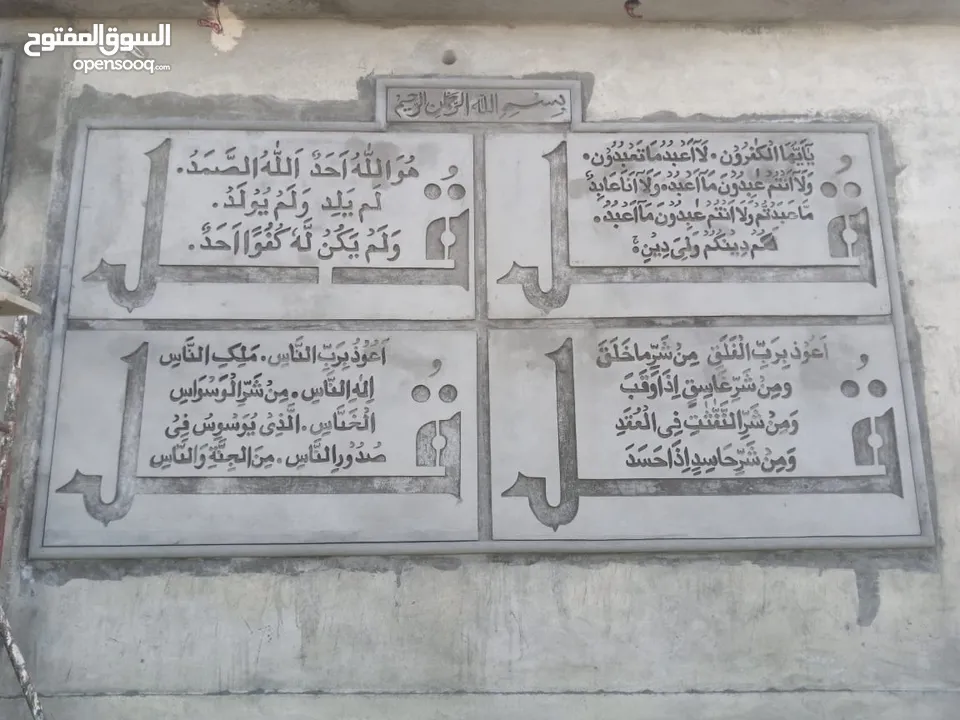 السوق المفتوح
opensooq.com
بسم الله الرحمن الرحيم
قُل
يٰٓاَيُّهَا الْكٰفِرُوْنَ. لَآ اَعْبُدُ مَا تَعْبُدُوْنَ.
وَلَآ اَنْتُمْ عٰبِدُوْنَ مَآ اَعْبُدُ. وَلَآ اَنَا عَابِدٌ
مَّا عَبَدْتُّمْ وَلَآ اَنْتُمْ عٰبِدُوْنَ مَآ اَعْبُدُ.
لَكُمْ دِيْنُكُمْ وَلِيَ دِيْنِ.
قُل
هُوَ اللّٰهُ اَحَدٌ اَللّٰهُ الصَّمَدُ.
لَمْ يَلِد وَلَمْ يُوْلَدْ.
وَلَمْ يَكُنْ لَّهٗ كُفُوًا اَحَدٌ.
قُل
اَعُوْذُ بِرَبِّ الْفَلَقِ مِنْ شَرِّ مَا خَلَقَ
وَمِنْ شَرِّ غَاسِقٍ اِذَا وَقَبَ
وَمِنْ شَرِّ النَّفّٰثٰتِ فِى الْعُقَدِ
وَمِنْ شَرِّ حَاسِدٍ اِذَا حَسَدَ
قُل
اَعُوْذُ بِرَبِّ النَّاسِ. مَلِكِ النَّاسِ
اِلٰهِ النَّاسِ. مِنْ شَرِّ الْوَسْوَاسِ
الْخَنَّاسِ. الَّذِىْ يُوَسْوِسُ فِىْ
صُدُوْرِ النَّاسِ. مِنَ الْجِنَّةِ وَالنَّاسِ